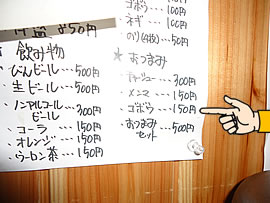 50円
飲み物
・びんビール…500円
・生ビール…500円
・ノンアルコールビール…300円
・コーラ…150円
・オレンジ…150円
・ウーロン茶…150円
・ゴボウ…100円
・ネギ…100円
・のり(4枚)…50円
★おつまみ
・チャーシュー…300円
・メンマ…150円
・ゴボウ…150円
・おつまみセット…500円